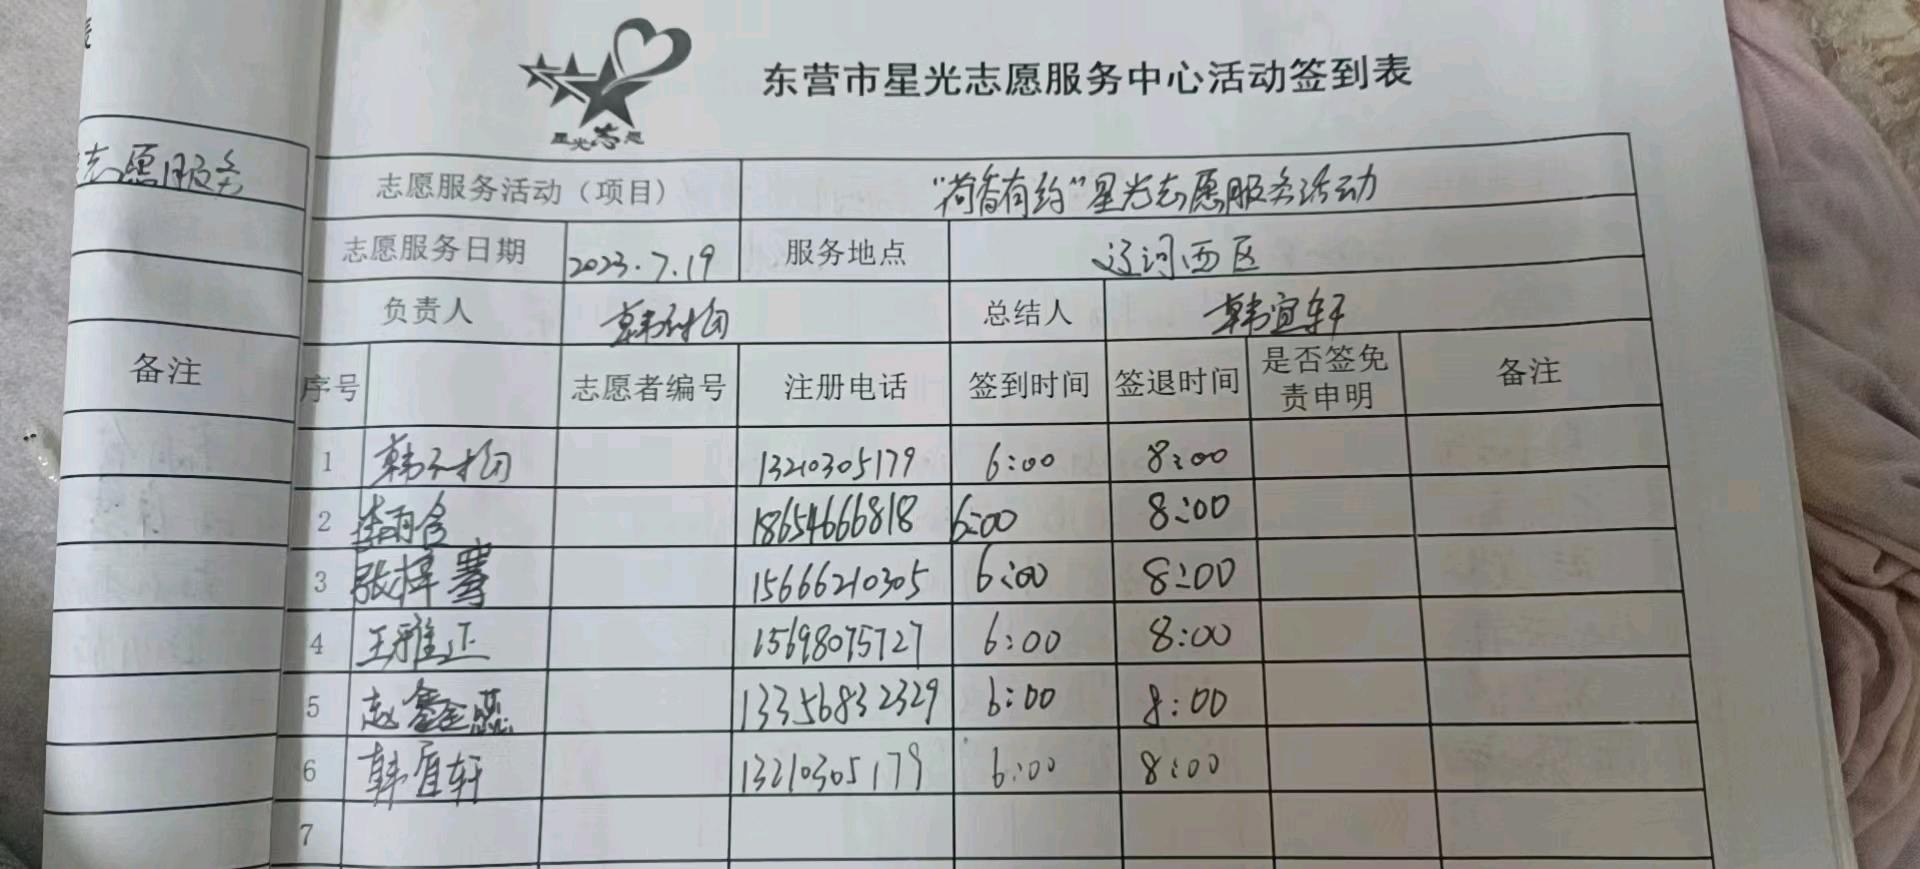 志愿服务
备注
星光志愿
东营市星光志愿服务中心活动签到表
志愿服务活动（项目） "荷香有约"星光志愿服务活动
志愿服务日期 2023.7.19 服务地点 辽河西区
负责人 韩 总结人 韩宜轩
序号 志愿者编号 注册电话 签到时间 签退时间 是否签免责申明 备注
1 韩 13210305179 6:00 8:00
2 李雨含 18654666818 6:00 8:00
3 张梓骞 15666210305 6:00 8:00
4 王雅正 15698075727 6:00 8:00
5 赵鑫蕊 13356832329 6:00 8:00
6 韩宜轩 13210305179 6:00 8:00
7